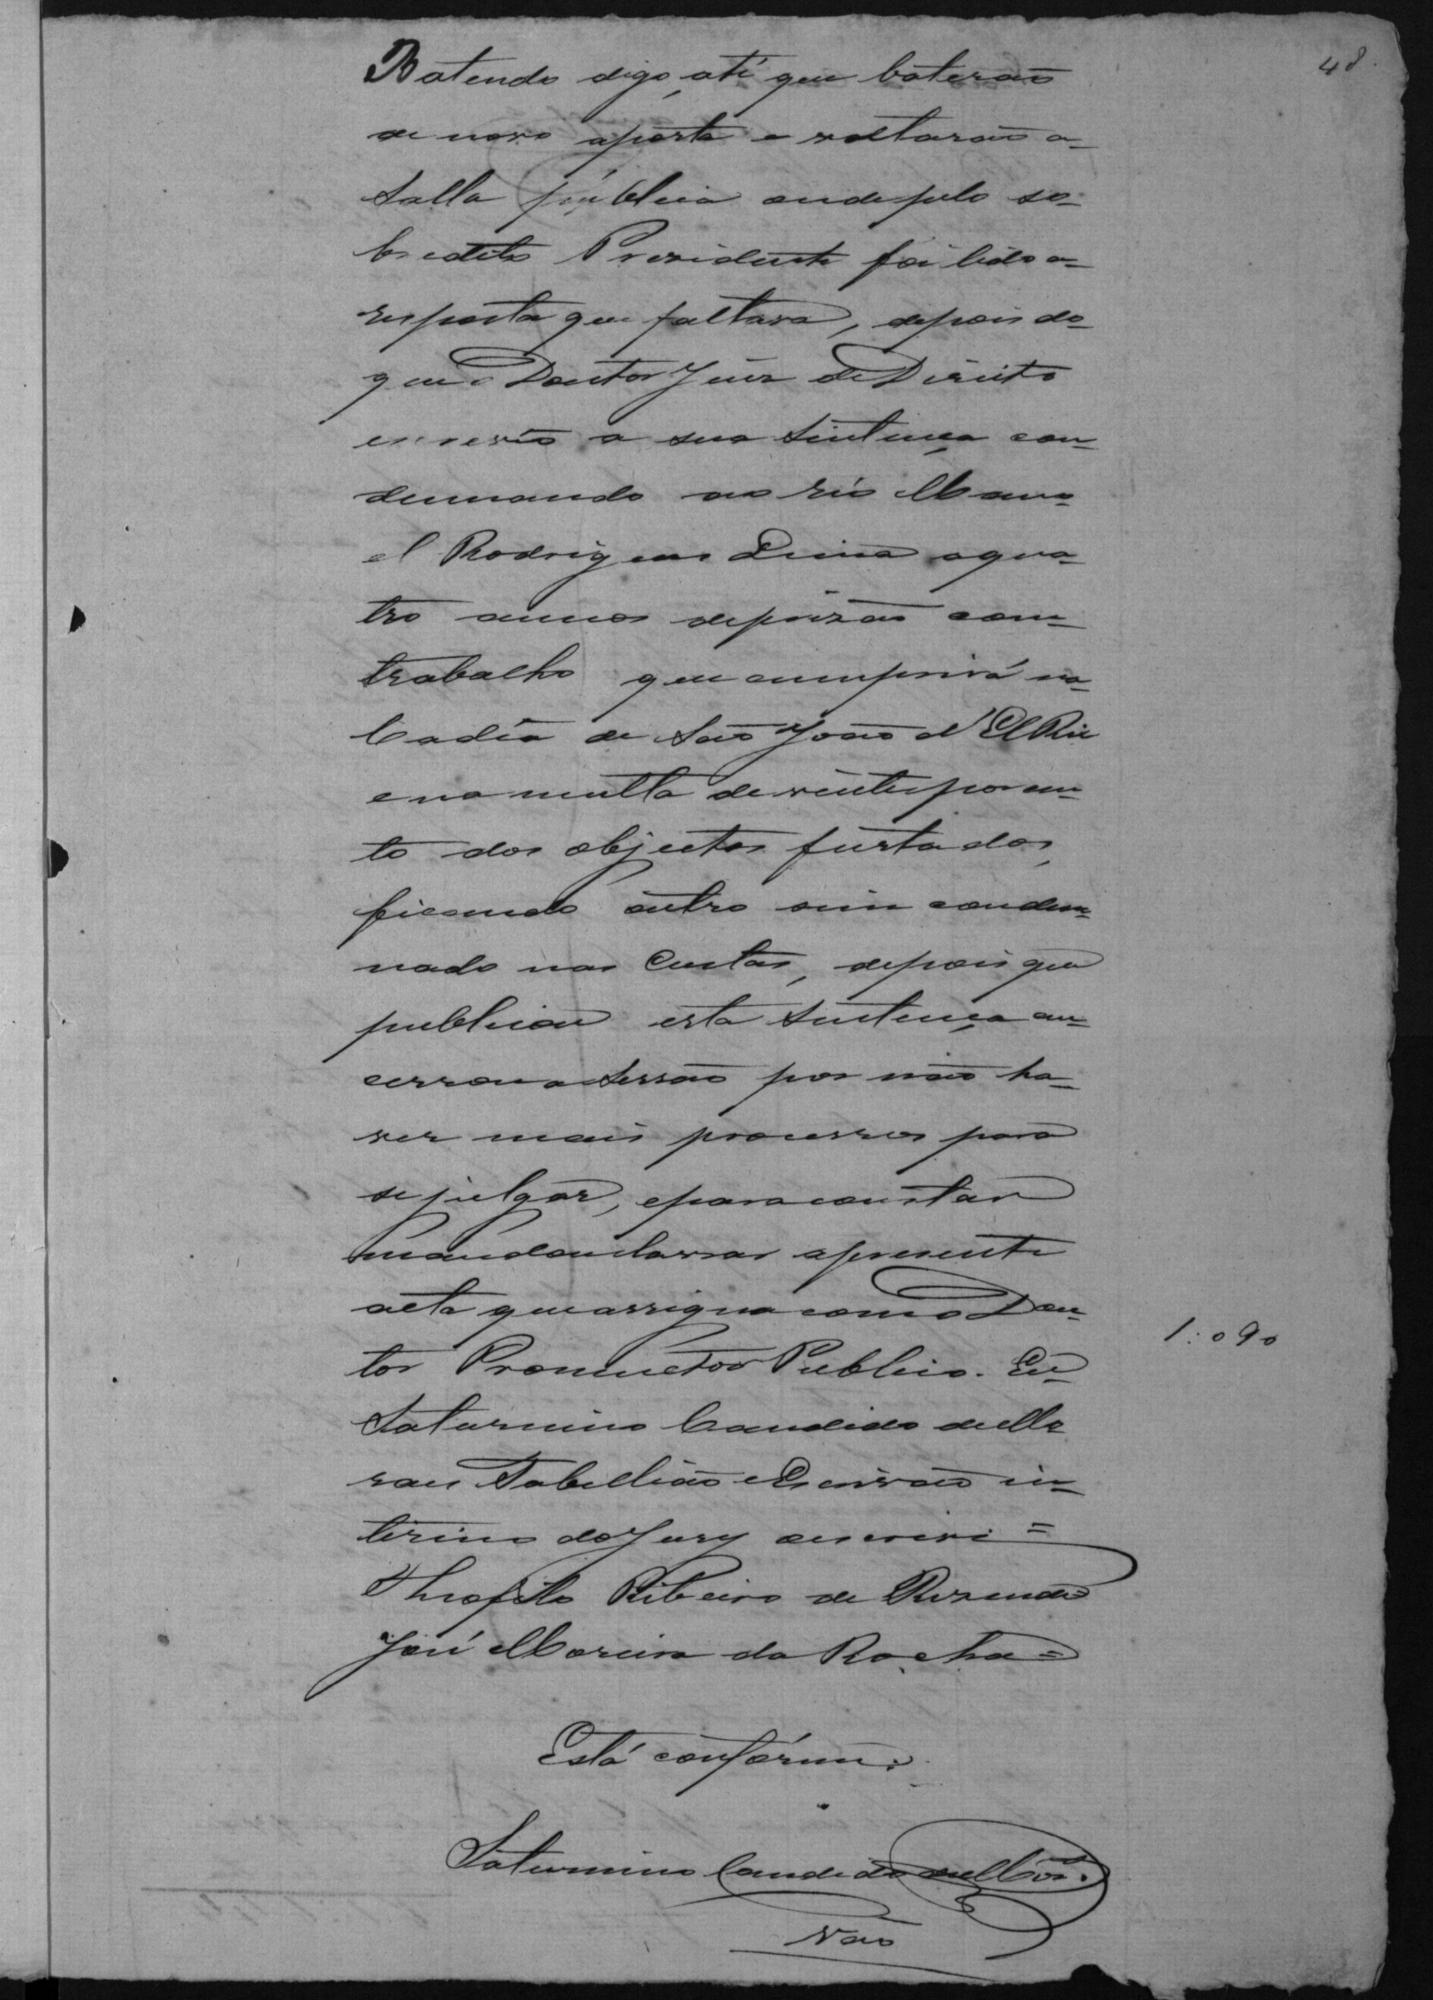 48.
Batendo digo, até que baterão
de novo aporta e voltarão a
Salla publica onde pelo so-
bredito Presidente foi lido a
resposta que faltava, depois do
que o Doutor Juiz de Direito
escrevêo a sua Sentença con-
demnando ao réo Mano-
el Rodrigues Lima aqua-
tro annos deprizão com
trabalho que cumprirá na
Cadêa de São João d'El Rei
e na multa de vinte por cen-
to dos objectos furtados,
ficando outro sim condem-
nado nas Custas, depois que
publicou esta Sentença en-
cerrou a Sessão por não ha-
ver mais processos para
se julgar, epara constar
mandou lavrar apresente
acta que assigna com o Dou-
tor Promuctor Publico. Eu
Saturnino Candido de Mo
rau Tabellião e Escrivão in-
terino do Jury o escrevi =
Theofilo Ribeiro de Rezende =
José Moreira da Rocha =
1:090
Está conforme.
Saturnino Candido de Mo